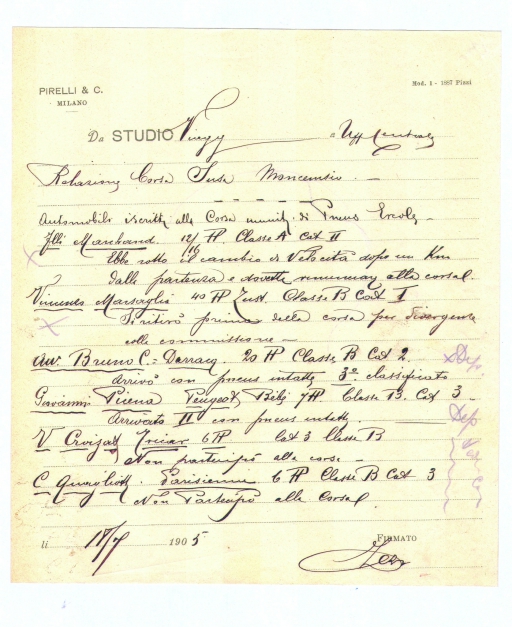 PIRELLI & C.
MILANO
Mod. 1 - 1887 Pizzi
Da STUDIO a Uff Centrale
Relazione Corsa Susa Moncenisio. —
Automobili iscritti alla Corsa muniti di Pneus Ercole —
Flli Marchand. 12/16 HP Classe A Cat II
Ebbe rotto il cambio di Velocità dopo un Km
dalla partenza e dovette alla corsa.
Vincenzo Marsaglia 40 HP Zust Classe B Cat I
Si ritirò prima della corsa per divergenze
colla commissione —
Avv. Bruno C. - Darracq. 20 HP Classe B Cat 2. Dep
Arrivò con pneus intatti 3º classificato
Giovanni Peugeot Bébé 7 HP Classe B. Cat 3 —
Arrivato II con pneus intatti. Dep
V Croizat 6 HP Cat 3 Classe B
Non partecipò alla corsa —
C Parisienne 6 HP Classe B Cat 3
Non Partecipò alla Corsa
li 18/7 1905
FIRMATO